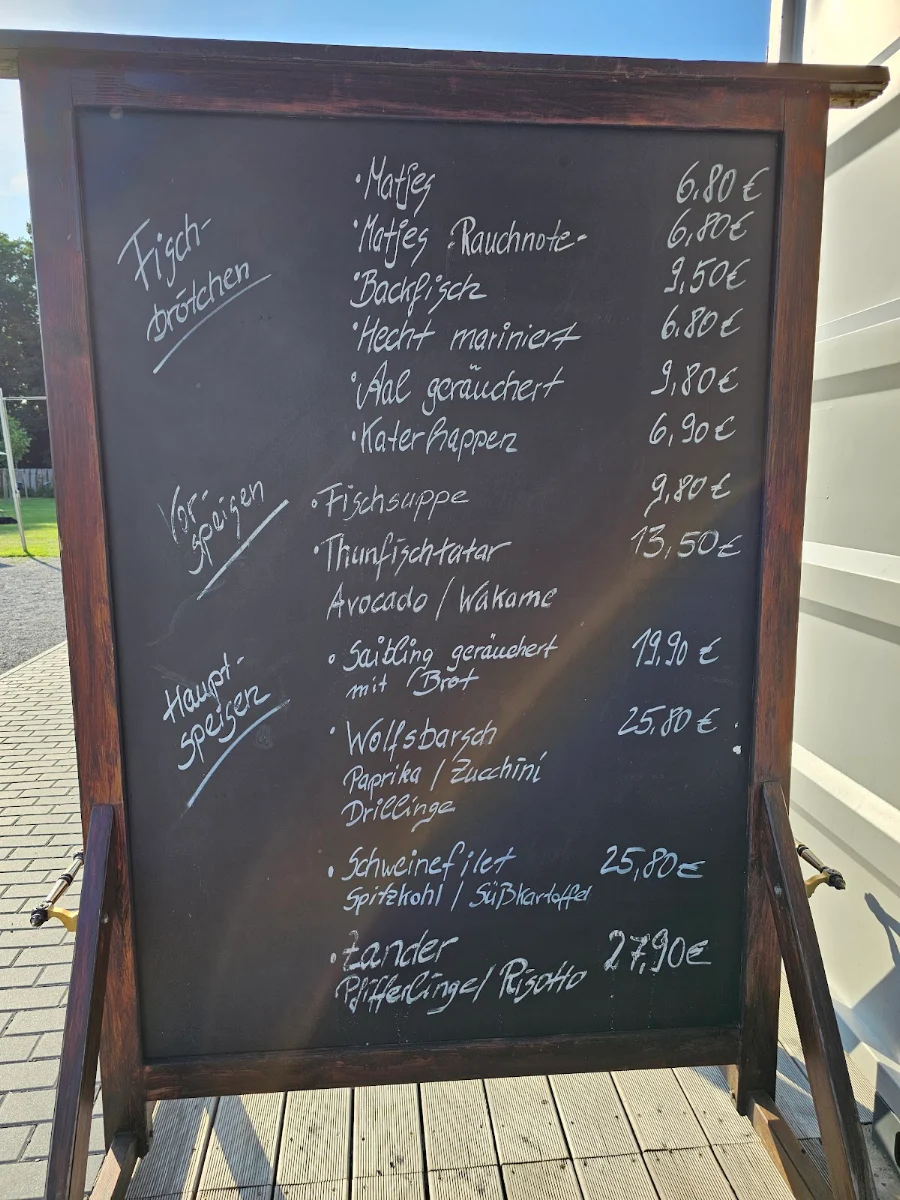 Fisch-
brötchen
· Matjes 6.80 €
· Matjes -Rauchnote- 6,80 €
· Backfisch 9,50 €
· Hecht mariniert 6.80 €
· Aal geräuchert 9,80 €
· Katerhappen 6,90 €
Vor-
speisen
· Fischsuppe 9.80 €
· Thunfischtatar 13,50 €
Avocado / Wakame
Haupt-
speisen
· Saibling geräuchert 19,90 €
mit Brot
· Wolfsbarsch 25,80 €
Paprika / Zucchini
Drillinge
· Schweinefilet 25,80 €
Spitzkohl / Süßkartoffel
· Zander 27,90 €
Pfifferlinge / Risotto